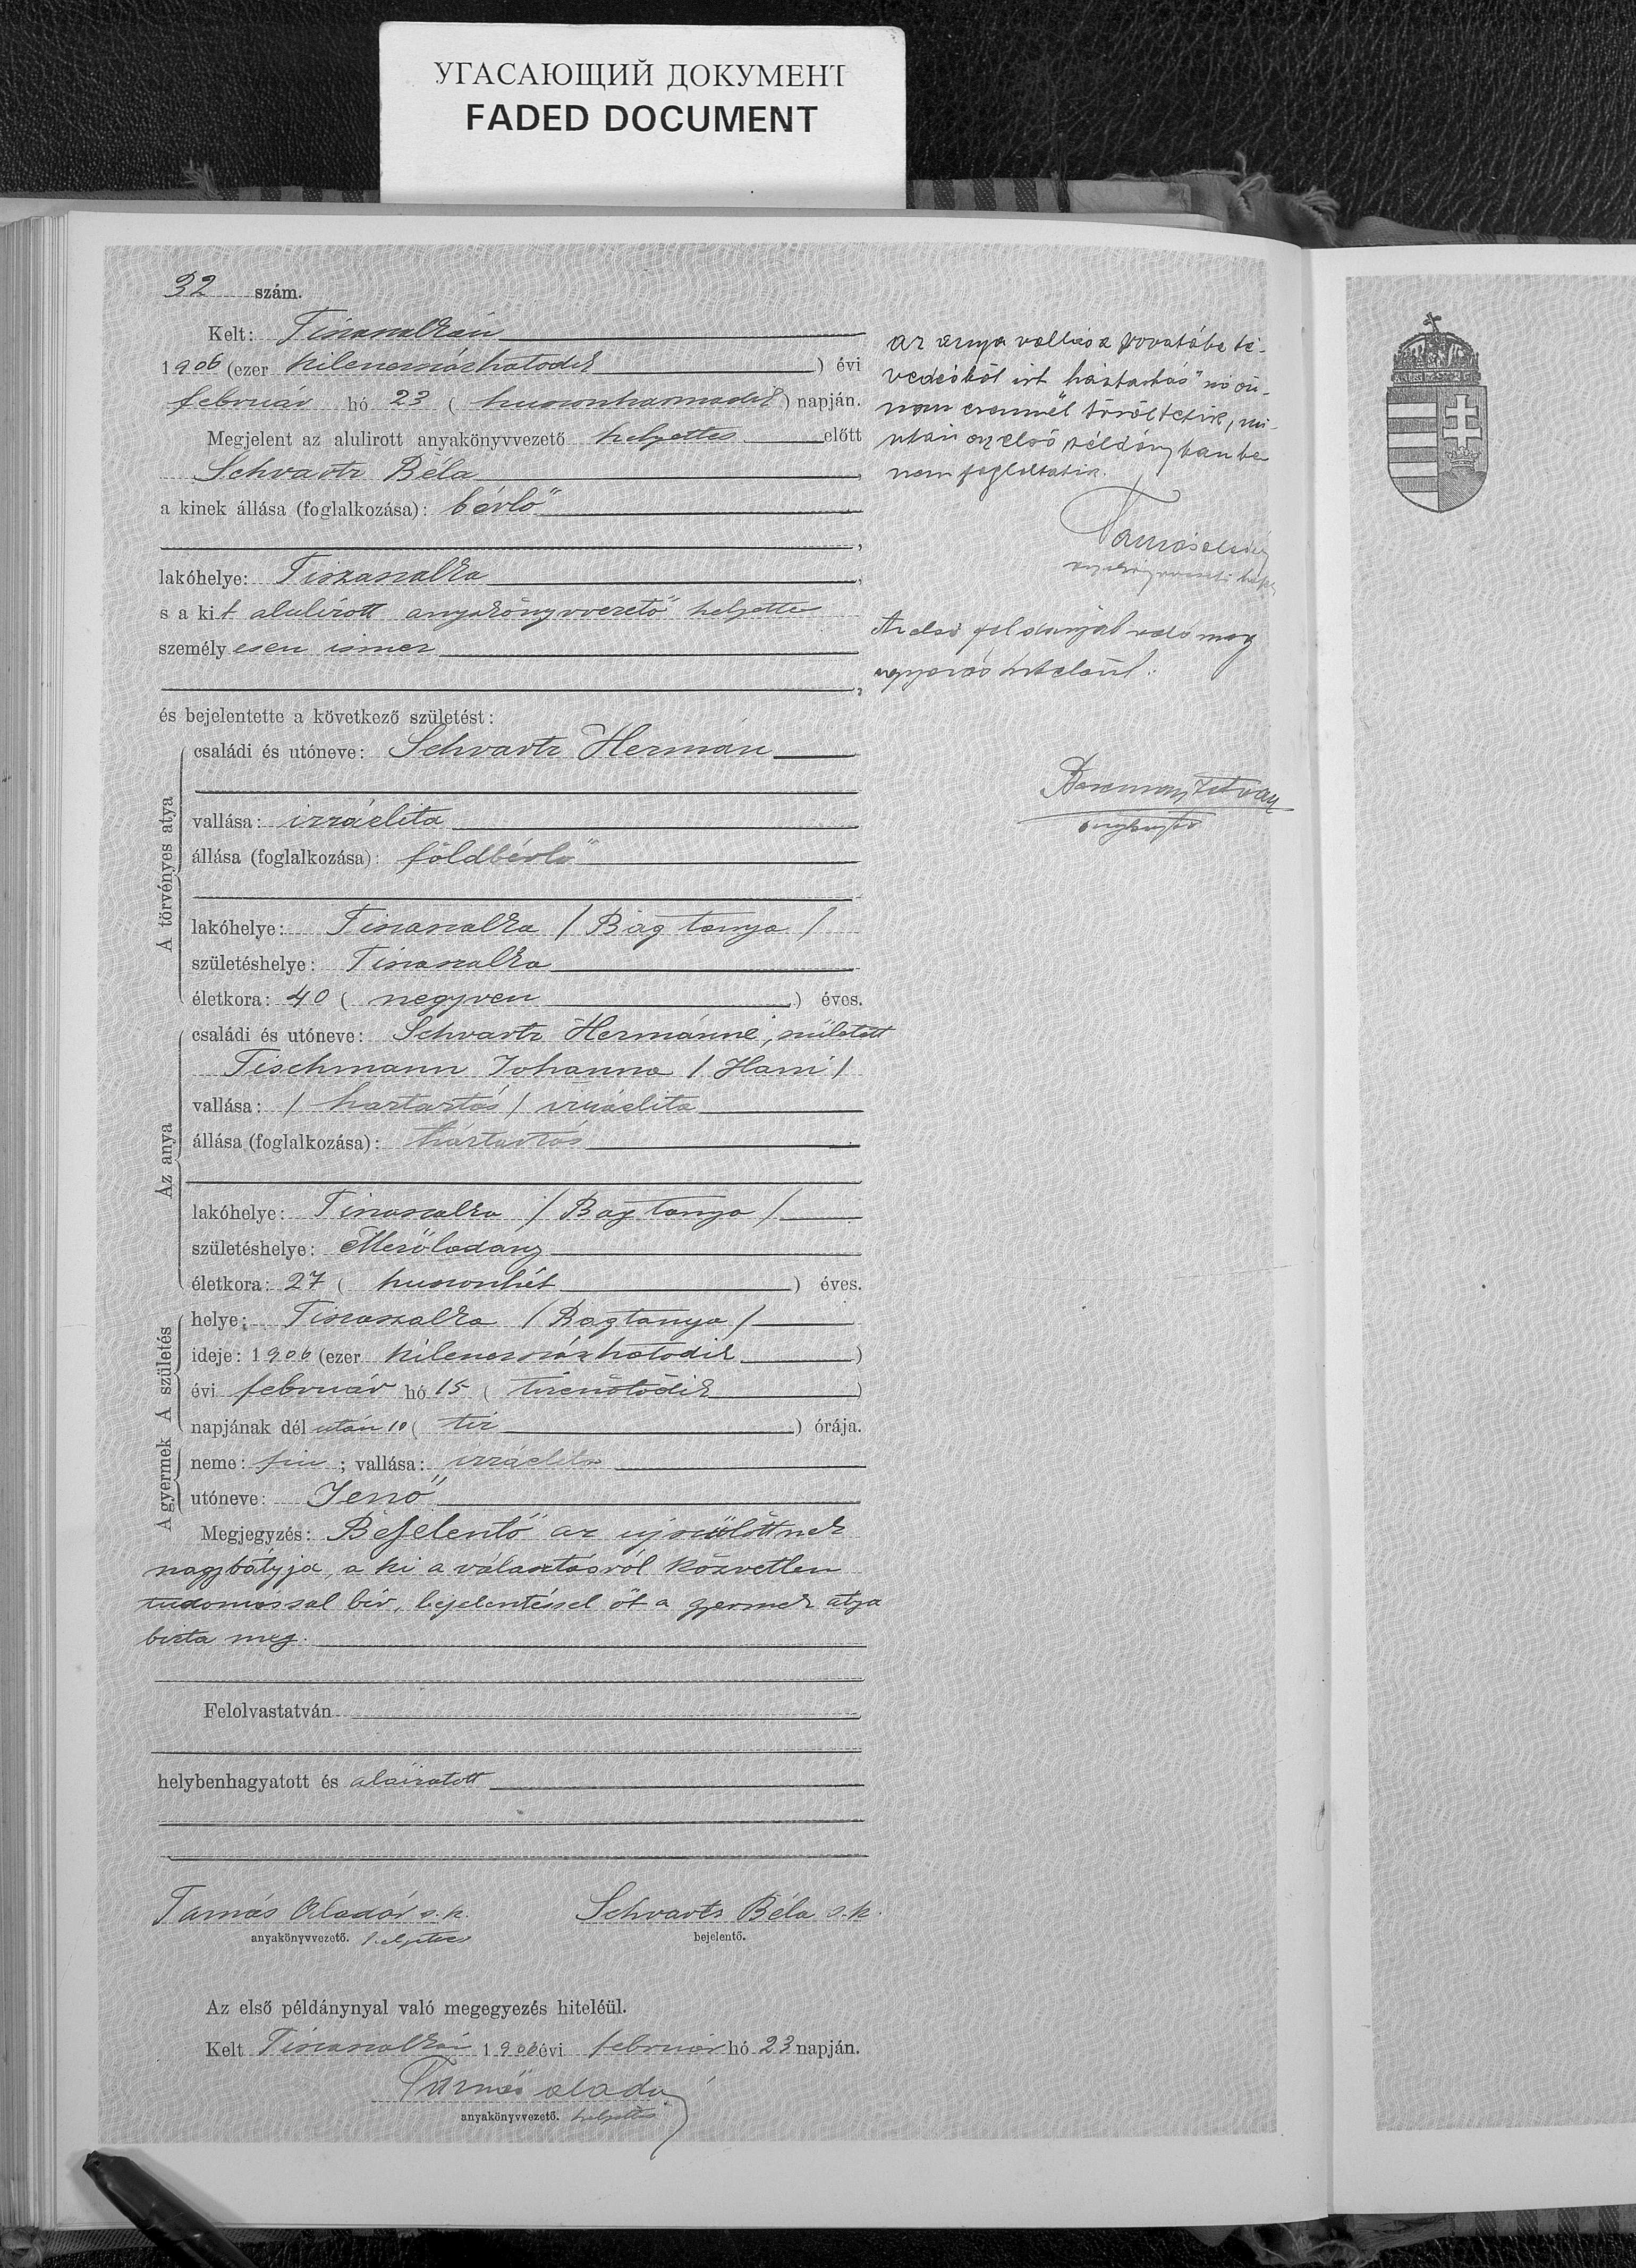 УГАСАЮЩИЙ ДОКУМЕНТ
FADED DOCUMENT
32 szám.
Kelt: Tiszaszalkán
1906 (ezer kilencszázhatodik) évi
február hó 23 (huszonharmadik) napján.
Megjelent az alulirott anyakönyvvezető helyettes előtt
Schvartz Béla,
a kinek állása (foglalkozása): bérlő
,
lakóhelye: Tiszaszalka,
s a kit alulirott anyakönyvvezető helyettes
személyesen ismer
,
és bejelentette a következő születést:
A törvényes atya
családi és utóneve: Schvartz Hermán
vallása: izráelita
állása (foglalkozása): földbérlő
lakóhelye: Tiszaszalka / Bág tanya /
születéshelye: Tiszaszalka
életkora: 40 (negyven) éves.
Az anya
családi és utóneve: Schvartz Hermánné, született
Tischmann Johanna / Hani /
vallása: / háztartás / izráelita
állása (foglalkozása): háztartás
lakóhelye: Tiszaszalka / Bag tanya /
születéshelye: Mezőladány
életkora: 27 (huszonhét) éves.
A születés
helye: Tiszaszalka / Bagtanya /
ideje: 1906 (ezer kilencszázhatodik)
évi február hó 15 (tizenötödik)
napjának dél után 10 (tíz) órája.
A gyermek
neme: fiu; vallása: izráelita
utóneve: Jenő
Megjegyzés: Bejelentő az ujszülöttnek
nagybátyja, a ki a választásról közvetlen
tudomással bír, bejelentéssel őt a gyermek atya
bizta meg.
Felolvastatván
helybenhagyatott és aláiratott
Tamás Aladár s.k.
anyakönyvvezető. helyettes
Schvartz Béla s.k.
bejelentő.
Az első példánynyal való megegyezés hiteléül.
Kelt Tiszaszalkán 1906 évi február hó 23 napján.
Tamás Aladár
anyakönyvvezető. helyettes
az anya vallása rovatába té-
vedésből irt "háztartás" szó on-
nan ezennel töröltetik, mi-
után az első példányban be
nem foglaltatik.
Tamás Aladár
Az első példánynyal való meg
egyezés hiteleül:
István